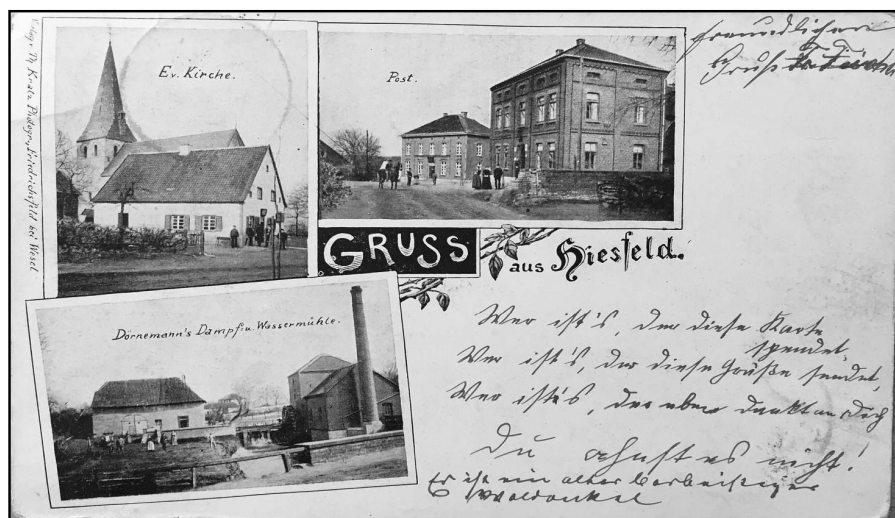 Verlag v. Th. Kratz Photogr., Friedrichsfeld bei Wesel
Ev. Kirche.
Post.
freundlichen
Gruß
GRUSS
aus Hiesfeld.
Dörnemann's Dampf- u. Wassermühle.
Wer ist's, der diese Karte
spendet,
Wer ist's, der diese Grüße sendet,
Wer ist's, der eben denkt an Dich
Du ahnst es nicht!
Er ist ein alter